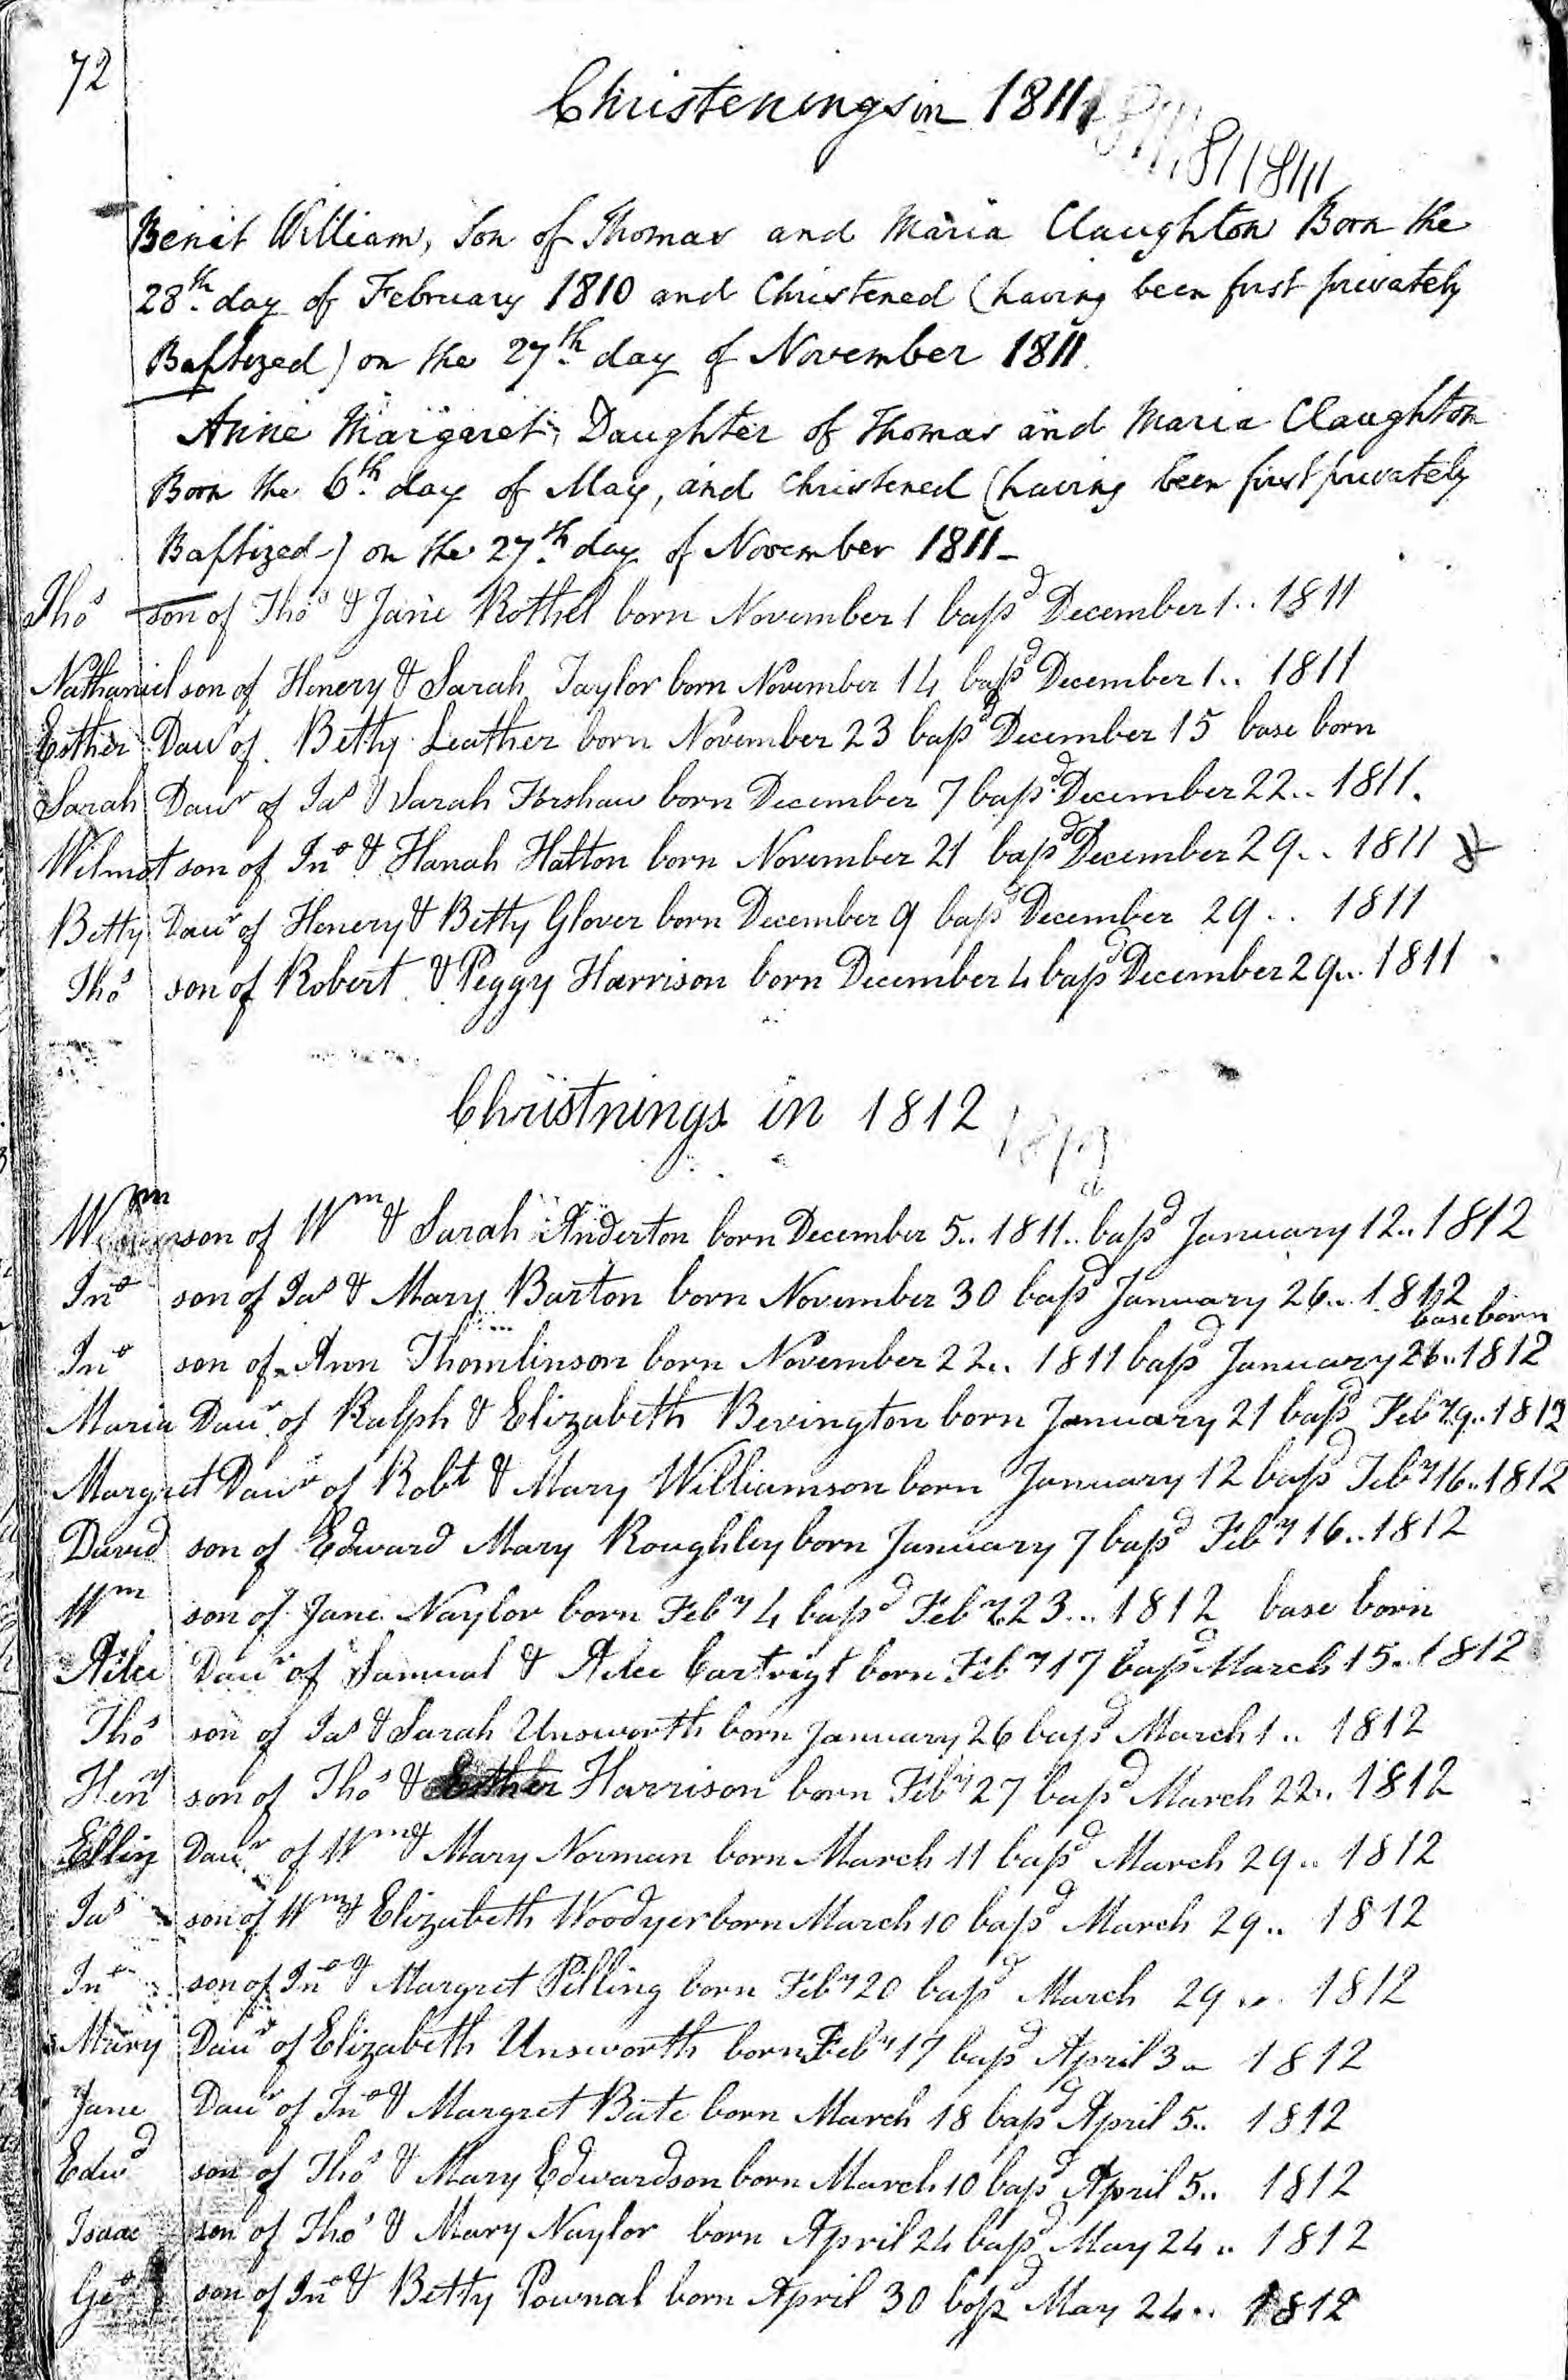 72
Christenings in 1811
1811 1811 1811
Benet William, Son of Thomas and Maria Claughton Born the
28th. day of February 1810 and Christened (having been first privately
Baptized) on the 27th. day of November 1811.
Anne Margaret, Daughter of Thomas and Maria Claughton
Born the 6th. day of May, and Christened (having been first privately
Baptized-) on the 27th. day of November 1811-
Thos son of Thos & Jane Rothel born November 1 bapd December 1.. 1811
Nathaniel son of Henery & Sarah Taylor born November 14 bapd December 1.. 1811
Esther Daur of Betty Leather born November 23 bapd December 15 base born
Sarah Daur of Jas & Sarah Forshaw born December 7 bapd December 22.. 1811.
Wilmot son of Jno & Hanah Hatton born November 21 bapd December 29.. 1811
Betty Daur of Henery & Betty Glover born December 9 bapd December 29.. 1811
Thos son of Robert & Peggy Harrison born December 4 bapd December 29.. 1811
Christnings in 1812
Wm son of Wm & Sarah Anderton born December 5.. 1811.. bapd January 12.. 1812
Jno son of Jas & Mary Barton born November 30 bapd January 26.. 1812
base born
Jno son of Ann Thomlinson born November 22.. 1811 bapd January 26.. 1812
Maria Daur of Ralph & Elizabeth Bevington born January 21 bapd Feby 9.. 1812
Margret Daur of Robt & Mary Williamson born January 12 bapd Feby 16.. 1812
David son of Edward Mary Roughley born January 7 bapd Feby 16.. 1812
Wm son of Jane Naylor born Feby 4 bapd Feby 23... 1812 base born
Ailce Daur of Samual & Ailce Cartrigt born Feby 17 bapd March 15.. 1812
Thos son of Jas & Sarah Unsworth born January 26 bapd March 1.. 1812
Heny son of Thos & Esther Harrison born Feby 27 bapd March 22.. 1812
Ellin Daur of Wm & Mary Norman born March 11 bapd March 29.. 1812
Jas son of Wm & Elizabeth Woodyer born March 10 bapd March 29.. 1812
Jno son of Jno & Margret Pilling born Feby 20 bapd March 29... 1812
Mary Daur of Elizabeth Unsworth born Feby 17 bapd April 3.. 1812
Jane Daur of Jno & Margret Bate born March 18 bapd April 5.. 1812
Edwd son of Thos & Mary Edwardson born March 10 bapd April 5.. 1812
Isaac son of Thos & Mary Naylor born April 24 bapd May 24.. 1812
Geo son of Jno & Betty Pownal born April 30 bapd May 24.. 1812